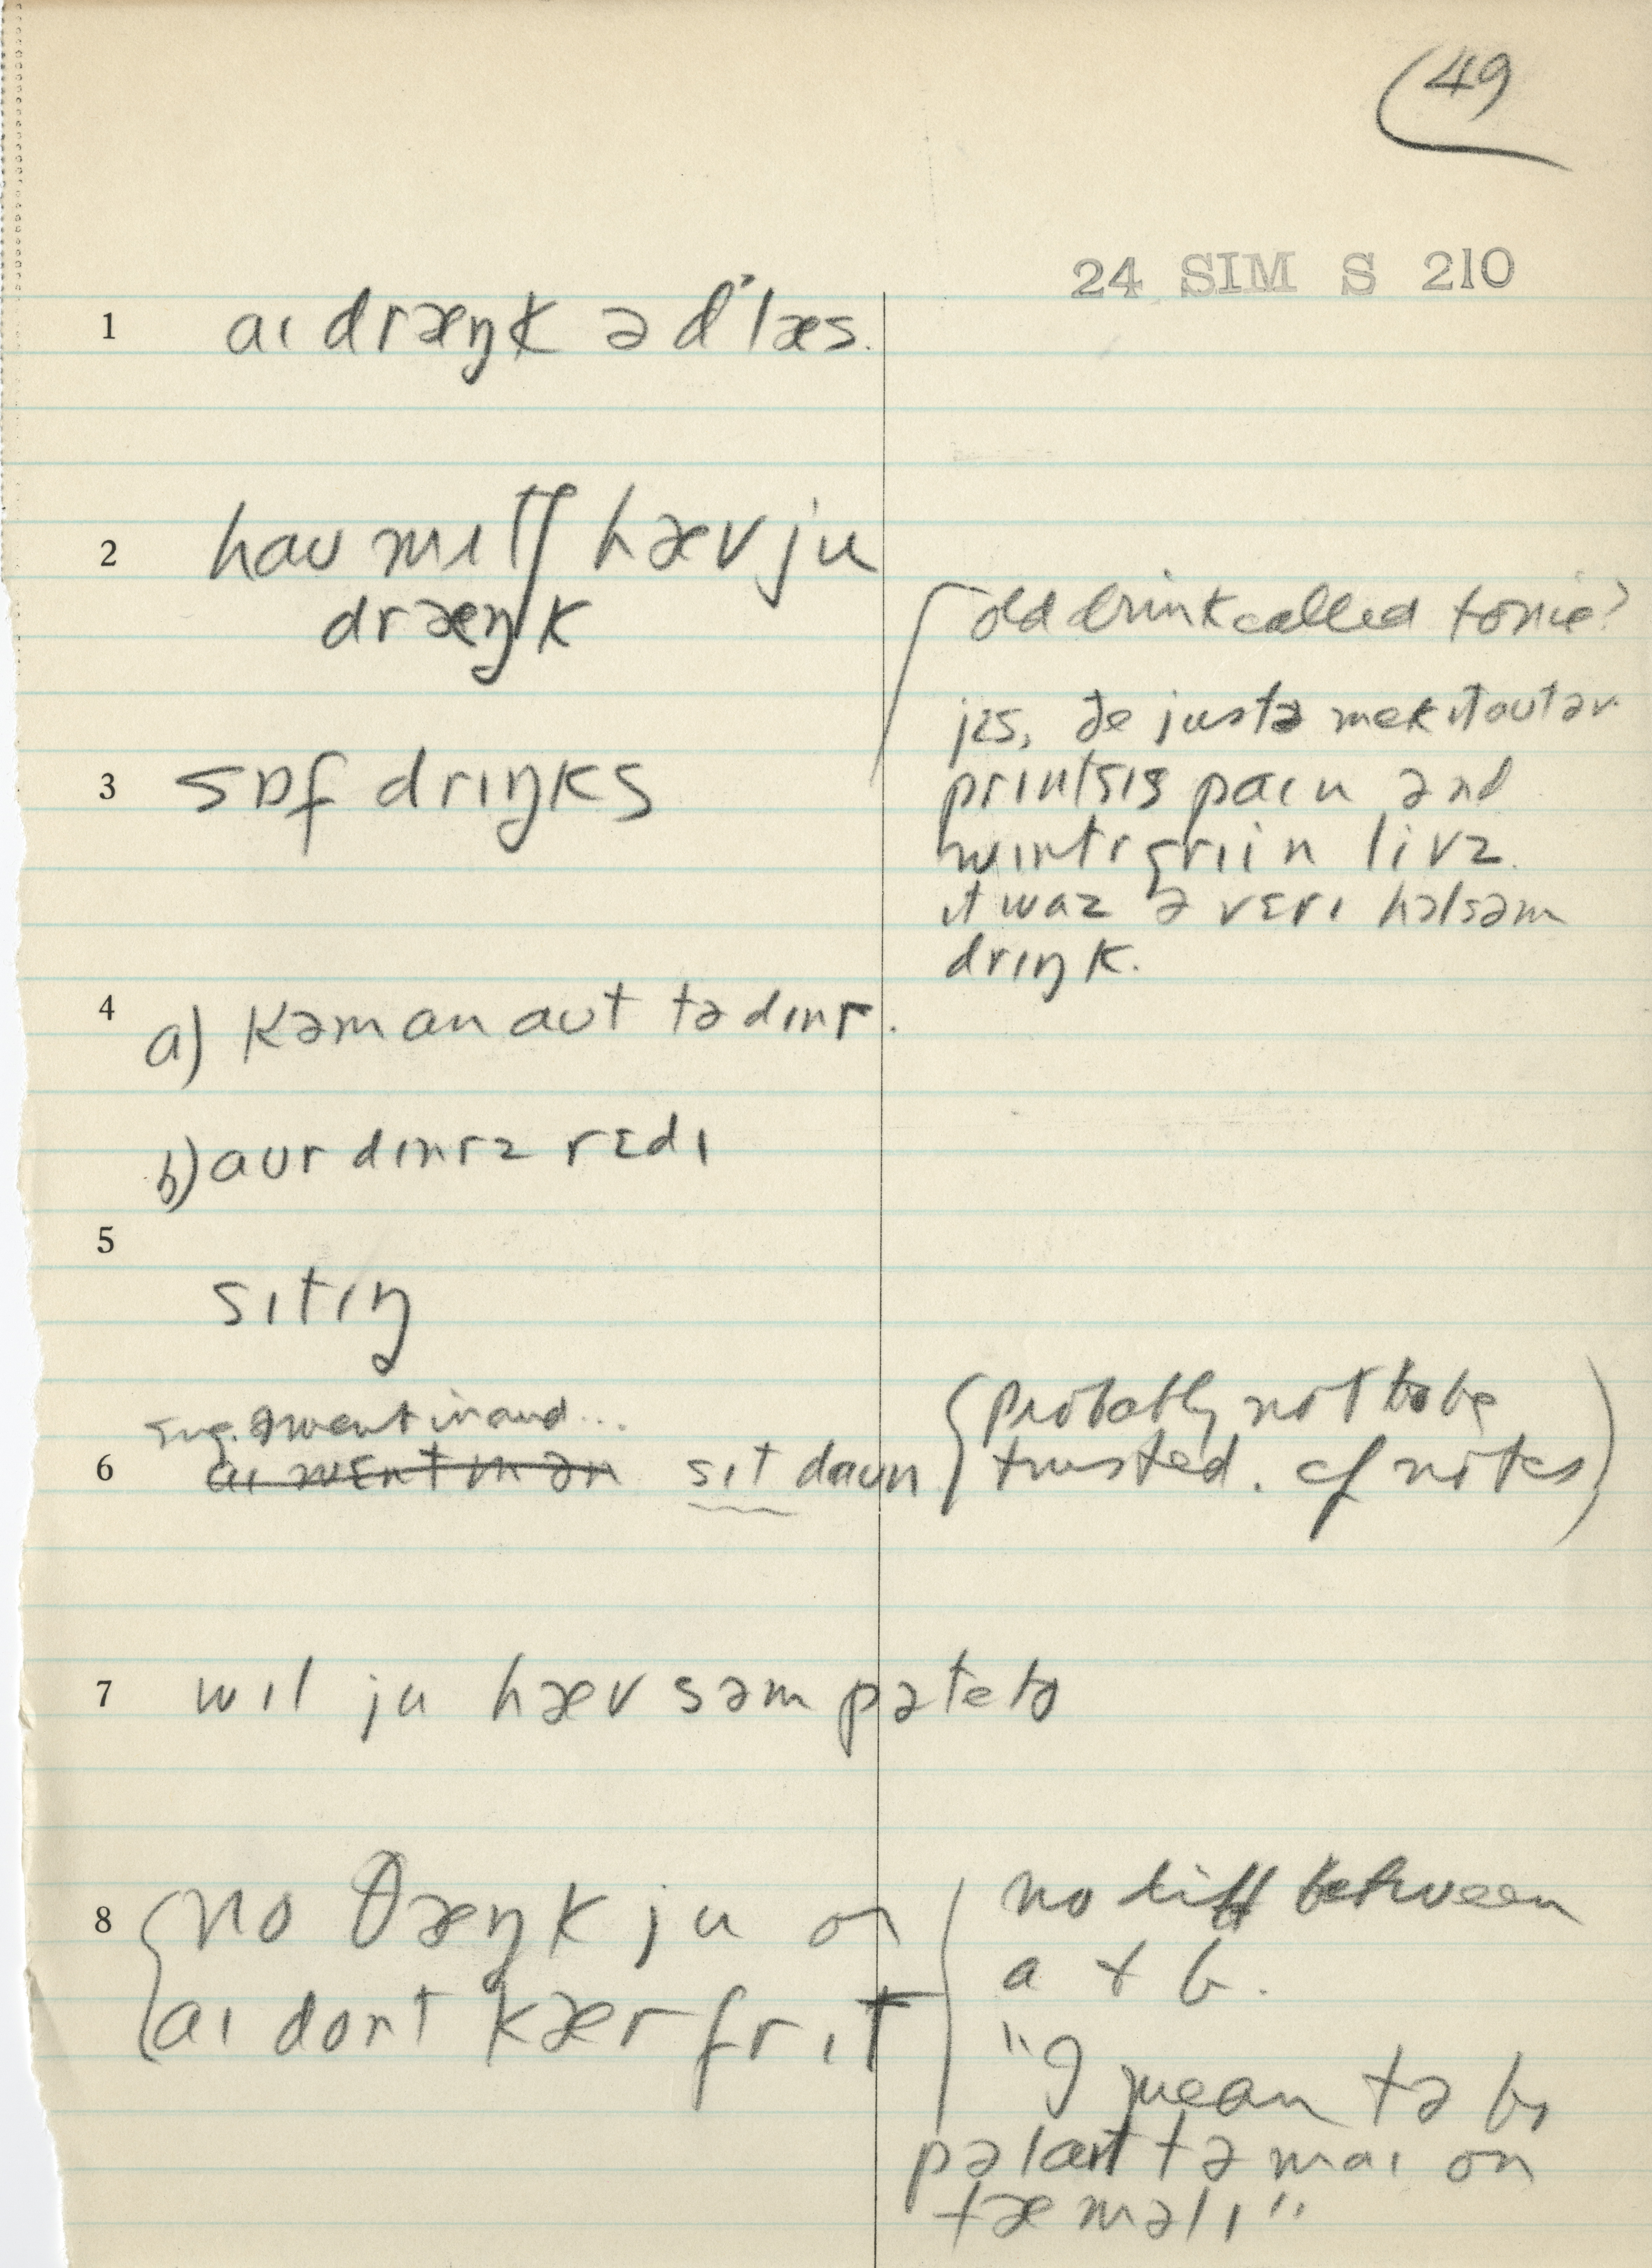 49
24 SIM S 210
1 aɪ dræŋk ə d'læs.
2 haʊ mɪtʃ hæv ju
dræŋk
old drink called tonic?
3 sɒf drɪŋks
jɛs, ðe justə mek ɪt aʊt əv
prɪntsɪs paɪn ənd
wɪntrgriin livz.
ɪt waz ə vɛrɪ holsəm
drɪŋk.
4 a) kəm an aʊt tə dɪnr.
b) aʊr dɪnrz rɛdɪ
5
sɪtɪŋ
sug. I went in and...
6 aɪ wɛnt ɪn ən sɪt daʊn
(probably not to be
trusted. cf notes)
7 wɪl ju hæv səm pəteto
8 no θæŋk ju or
aɪ dont kær fr ɪt
no diff between
a + b.
"I mean tə bɪ
pəlaɪt tə maɪ on
fæməlɪ"